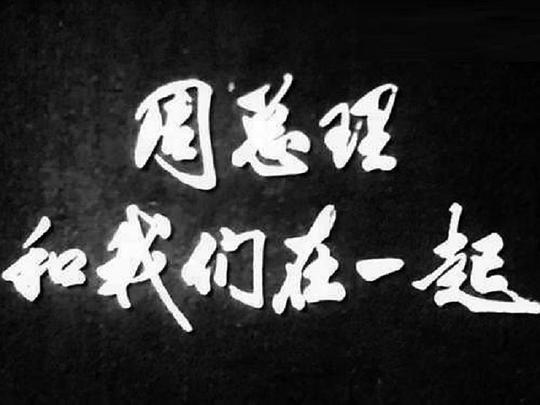 周总理
和我们在一起